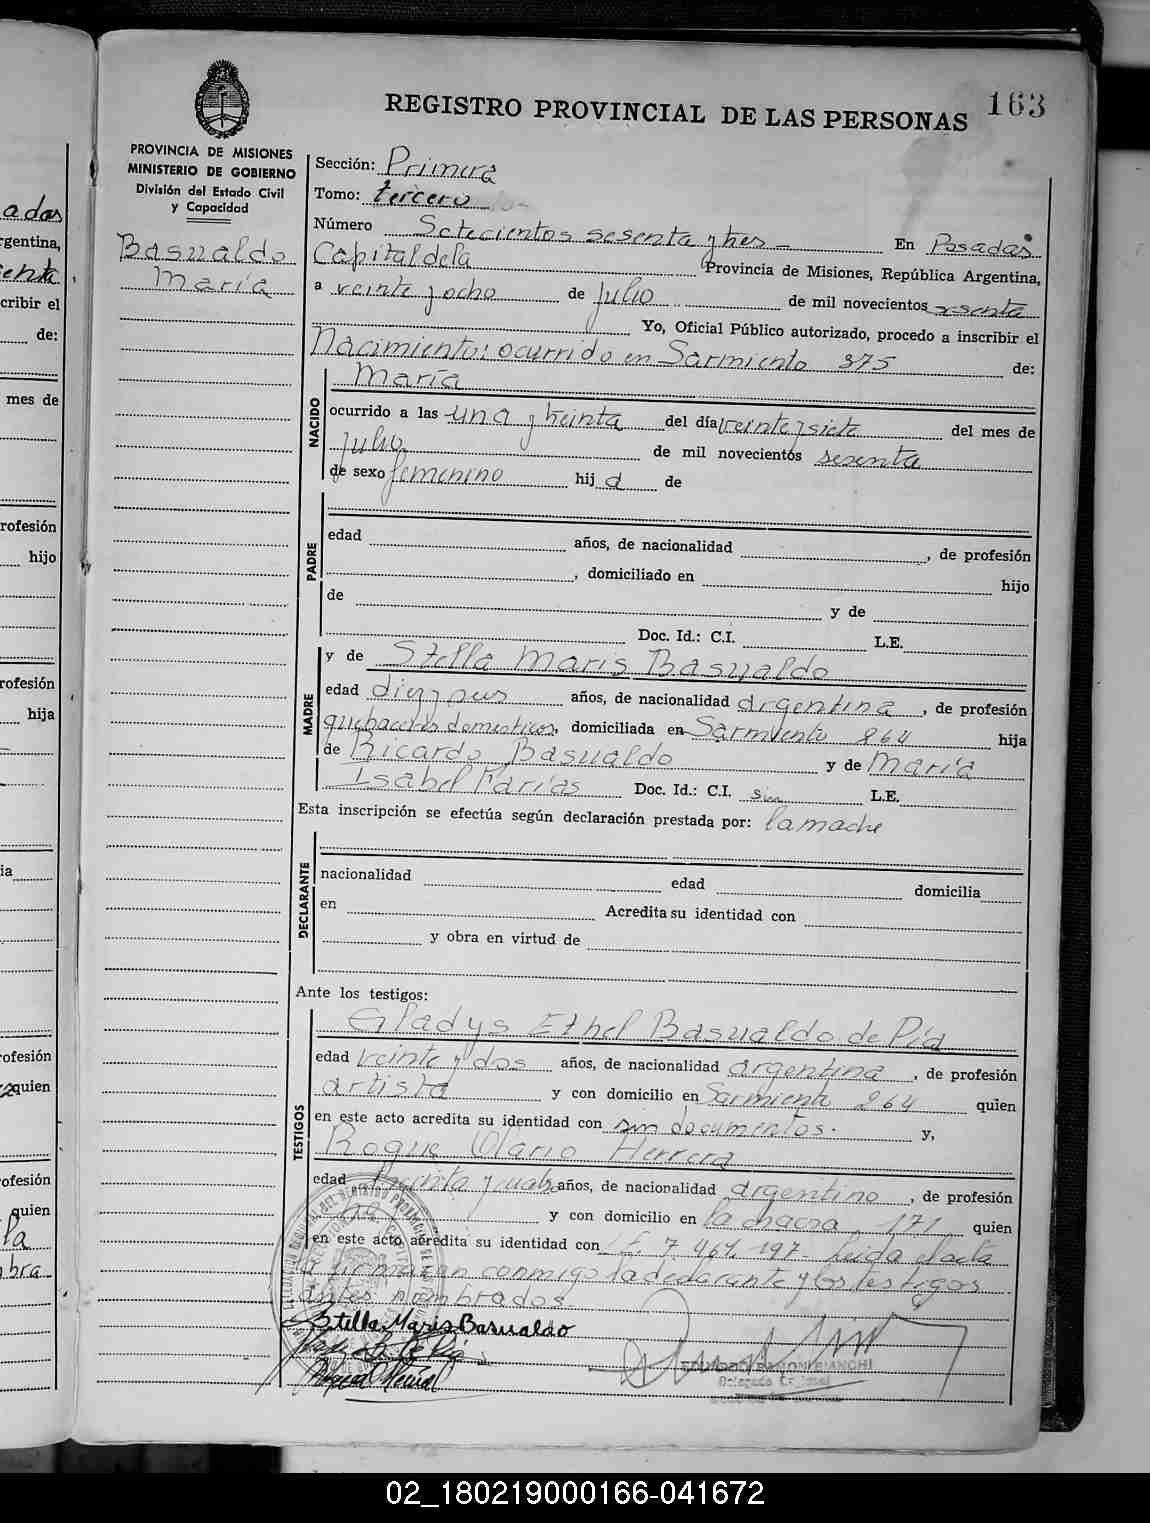 163
REGISTRO PROVINCIAL DE LAS PERSONAS
PROVINCIA DE MISIONES
MINISTERIO DE GOBIERNO
División del Estado Civil
y Capacidad
Basualdo
María
Sección: Primera
Tomo: tercero
Número Setecientos sesenta y tres - En Posadas
Capital de la Provincia de Misiones, República Argentina,
a veinte y ocho de Julio de mil novecientos sesenta
Yo, Oficial Público autorizado, procedo a inscribir el
Nacimiento: ocurrido en Sarmiento 375 de:
NACIDO
María
ocurrido a las una y treinta del día veinte y siete del mes de
Julio de mil novecientos sesenta
de sexo femenino hij a de
PADRE
edad años, de nacionalidad , de profesión
, domiciliado en hijo
de y de
Doc. Id.: C.I. L.E.
MADRE
y de Stella Maris Basualdo
edad años, de nacionalidad argentina , de profesión
quehaceres domesticos, domiciliada en Sarmiento 264 hija
de Ricardo Basualdo y de María
Isabel Farías Doc. Id.: C.I. L.E.
Esta inscripción se efectúa según declaración prestada por: la madre
DECLARANTE
nacionalidad edad domicilia
en Acredita su identidad con
y obra en virtud de
Ante los testigos:
TESTIGOS
Gladys Ethel Basualdo de Pía
edad veinte y dos años, de nacionalidad argentina , de profesión
artista y con domicilio en Sarmiento 264 quien
en este acto acredita su identidad con sin documentos. y,
Roque Olario Herrera
edad treinta y cuatro años, de nacionalidad argentino , de profesión
y con domicilio en la chacra 171 quien
en este acto acredita su identidad con 7.464.197. Leida el acta
firmaran conmigo la declarante y los testigos
antes nombrados.
Stella Maris Basualdo
EDUARDO RAMON BIANCHI
02_180219000166-041672